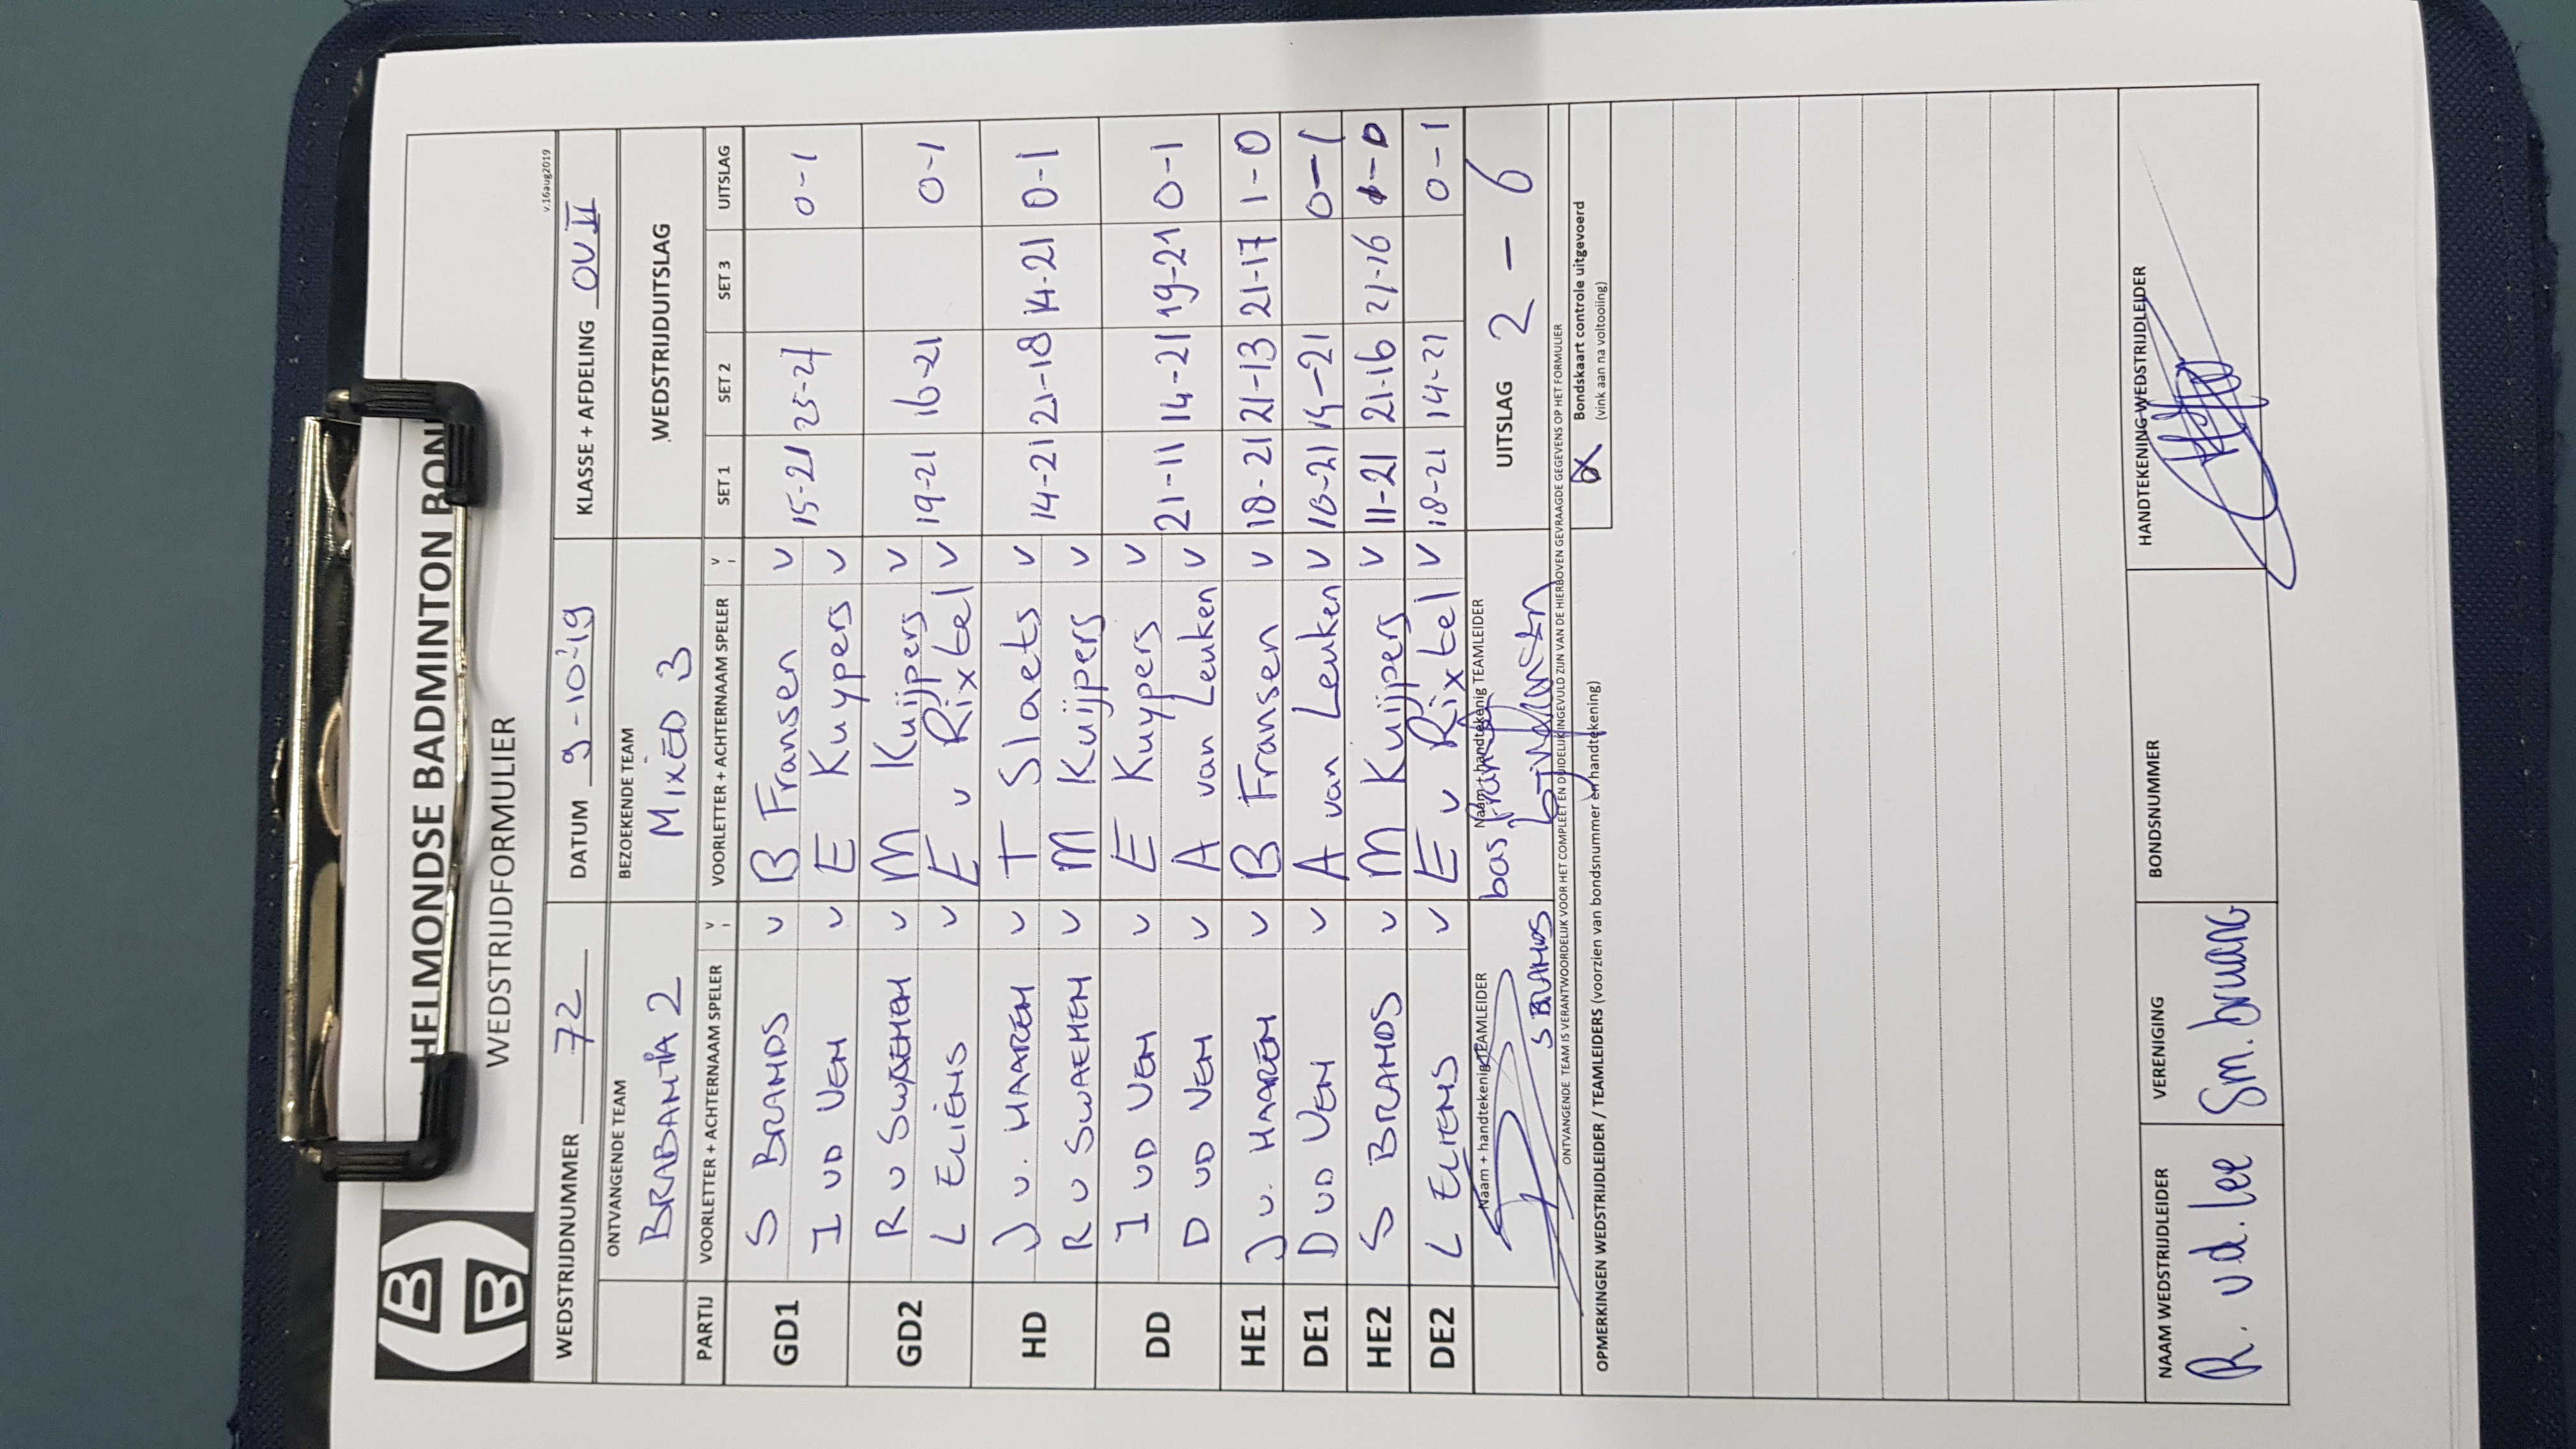 HELMONDSE BADMINTON BON
WEDSTRIJDFORMULIER
v.16aug2019
WEDSTRIJDNUMMER 72 DATUM 9-10-'19 KLASSE + AFDELING OV II
ONTVANGENDE TEAM BEZOEKENDE TEAM
BRABANTIA 2 MIXED 3 WEDSTRIJDUITSLAG
PARTIJ VOORLETTER + ACHTERNAAM SPELER V VOORLETTER + ACHTERNAAM SPELER V SET 1 SET 2 SET 3 UITSLAG
GD1 S BRANDS v B Fransen v 15-21 25-27 0-1
I VD VEN v E Kuypers v
GD2 R V SWAENEN v M Kuijpers v 19-21 16-21 0-1
L ELIËNS v E v Rixtel v
HD J v. HAAREN v T Slaets v 14-21 21-18 14-21 0-1
R V SWAENEN v M Kuijpers v
DD I VD VEN v E Kuypers v 21-11 14-21 19-21 0-1
D VD VEN v A van Leuken v
HE1 J v. HAAREN v B Fransen v 18-21 21-13 21-17 1-0
DE1 D VD VEN v A van Leuken v 18-21 14-21 0-1
HE2 S BRANDS v M Kuijpers v 11-21 21-16 21-16 1-0
DE2 L ELIENS v E v Rixtel v 18-21 14-21 0-1
Naam + handtekenig TEAMLEIDER Naam + handtekenig TEAMLEIDER
S BRANDS bas fransen UITSLAG 2 - 6
ONTVANGENDE TEAM IS VERANTWOORDELIJK VOOR HET COMPLEET EN DUIDELIJK INGEVULD ZIJN VAN DE HIERBOVEN GEVRAAGDE GEGEVENS OP HET FORMULIER
OPMERKINGEN WEDSTRIJDLEIDER / TEAMLEIDERS (voorzien van bondsnummer en handtekening)
Bondskaart controle uitgevoerd
(vink aan na voltooiing)
NAAM WEDSTRIJDLEIDER VERENIGING BONDSNUMMER HANDTEKENING WEDSTRIJDLEIDER
R. vd. Lee